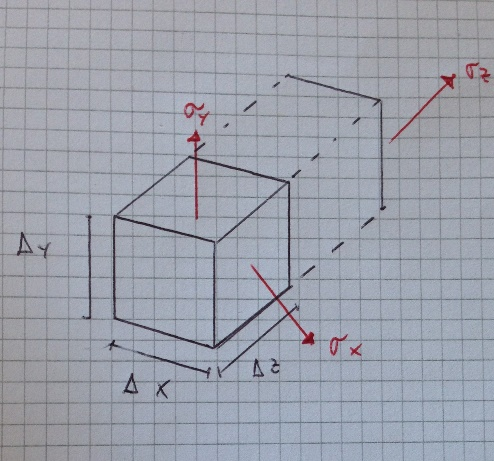 σz
σy
ΔY
σx
Δz
Δx